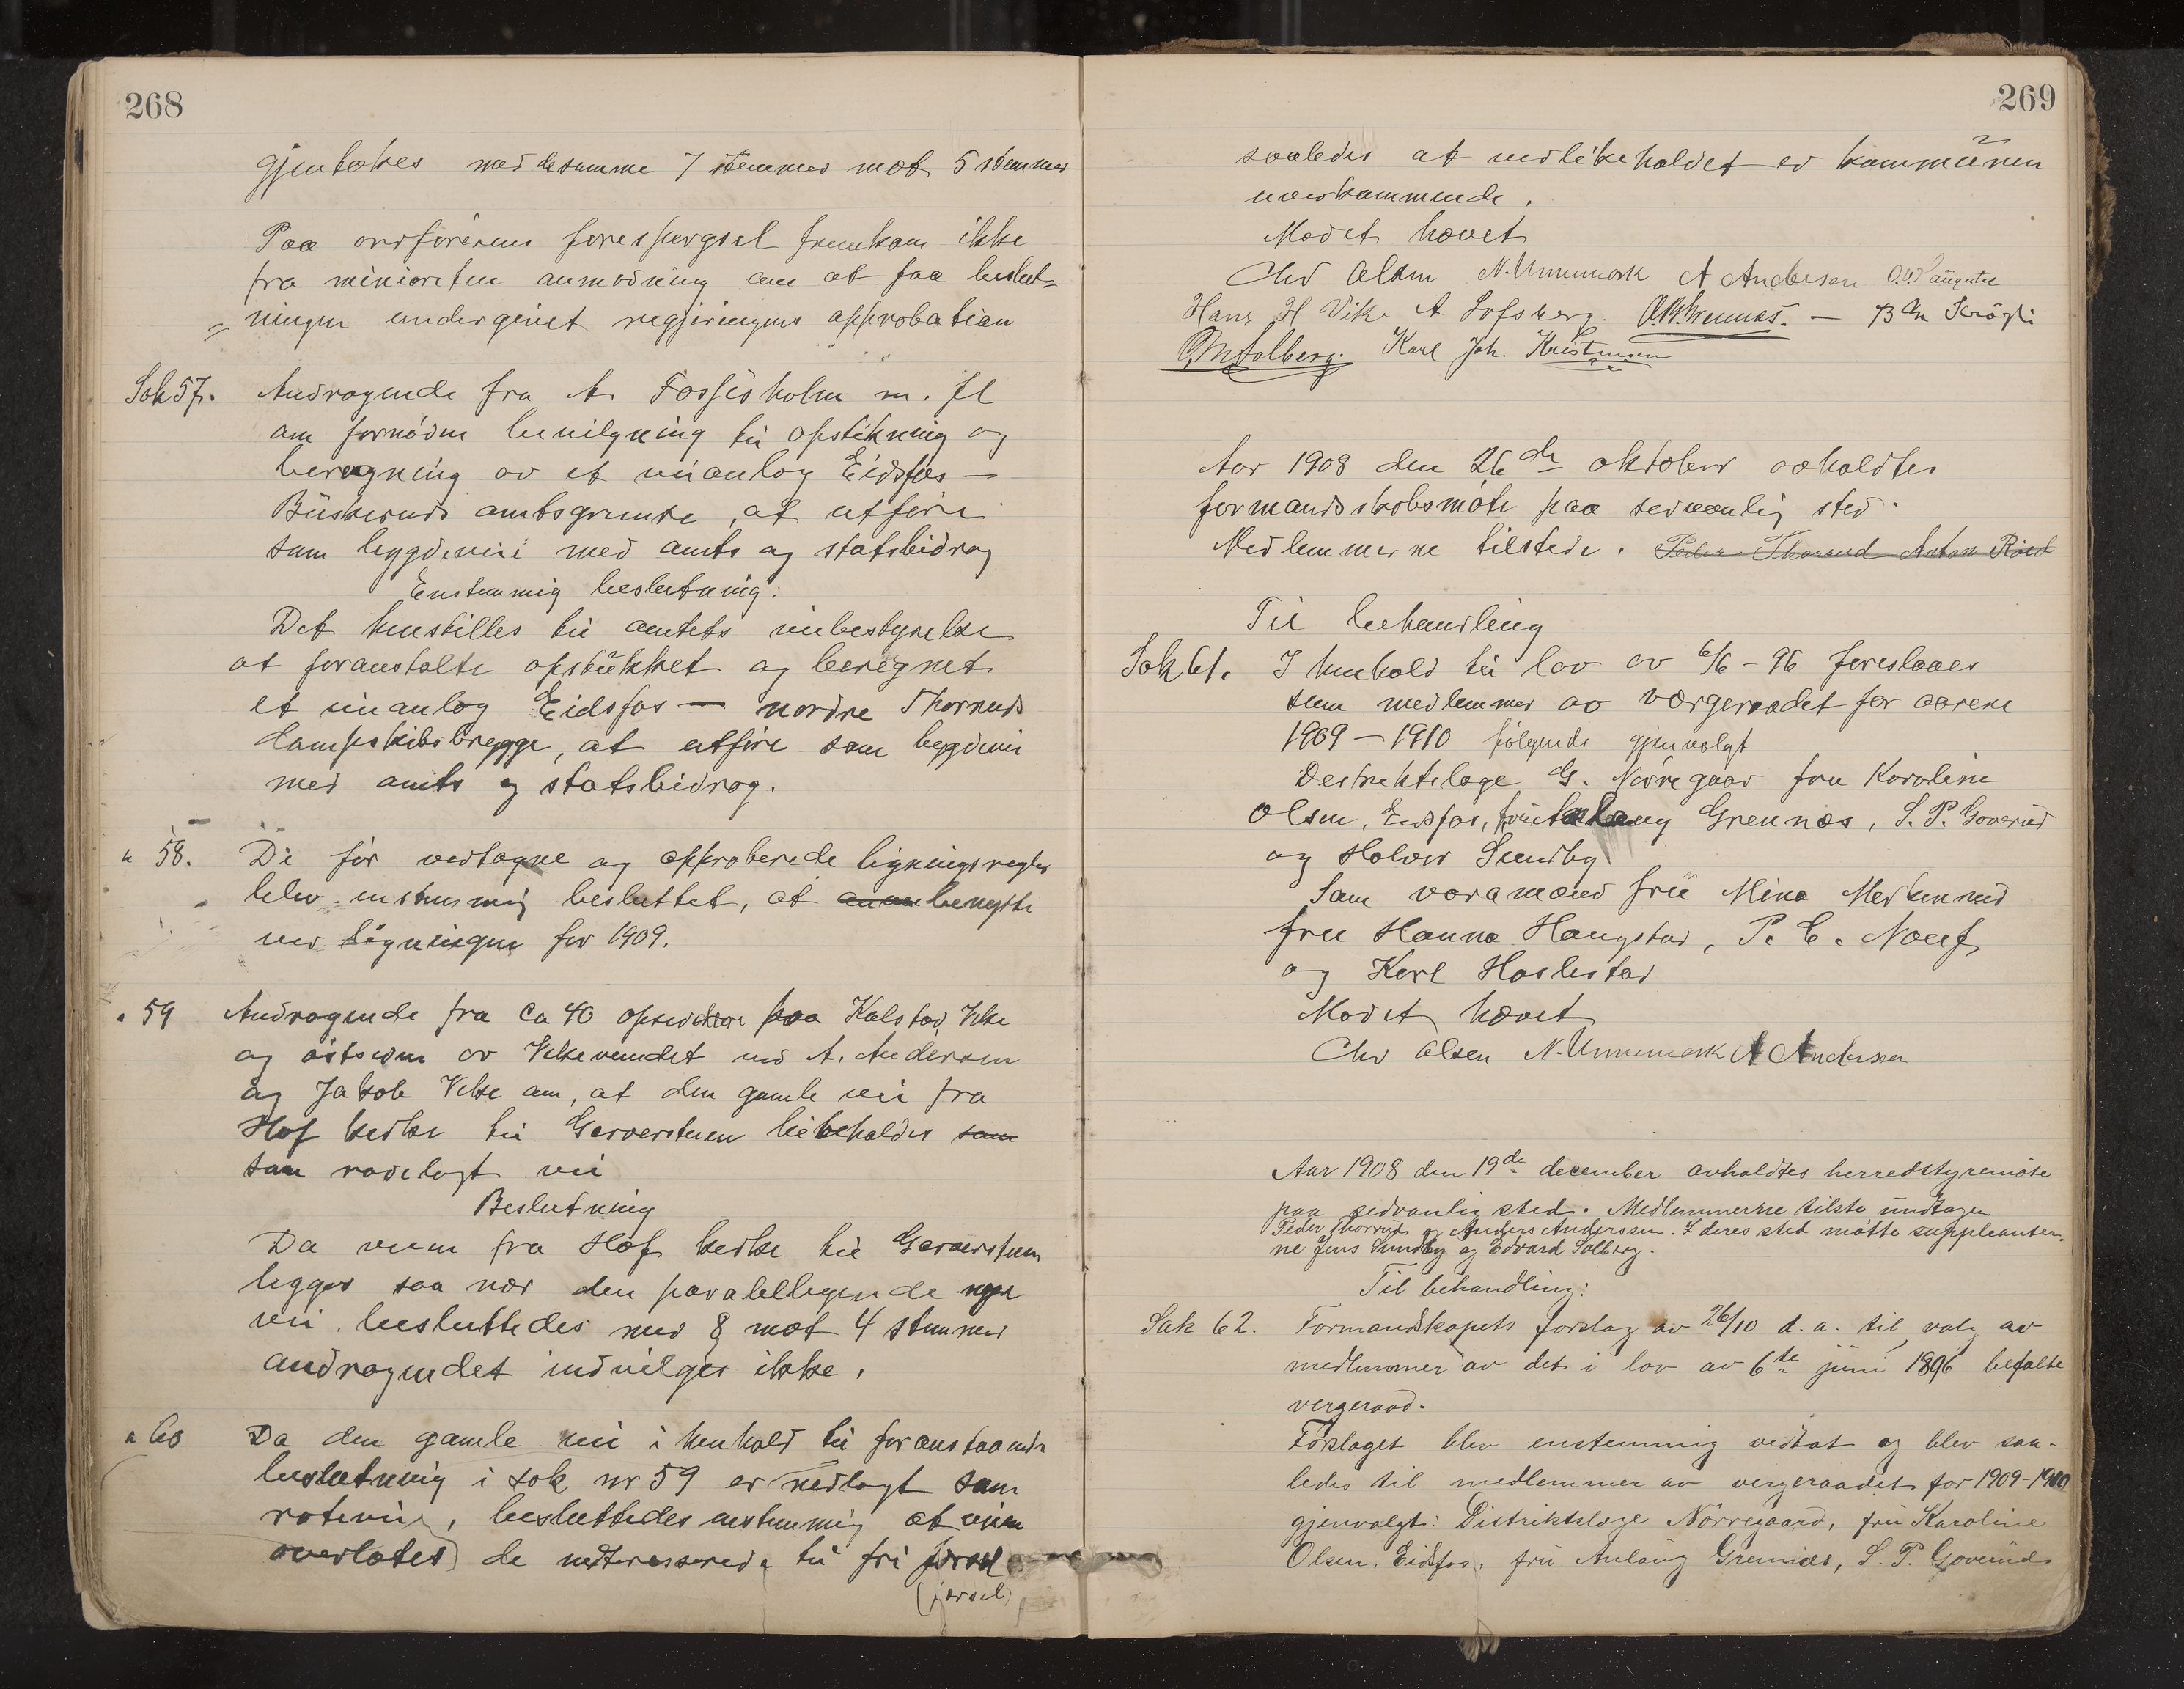 268
gjentokes med desamme 7 stemmer mot 5 stemmer
Paa ordførerens forespørgsel fremkom ikke
fra minioriteten anmodning om at faa beslut=
=ningen undergivet regjeringens approbation
Sak 57. Andragende fra A. Fossesholm m. fl
om fornøden bevilgning til opstikning og
beregning av et veianlæg Eidsfos —
Buskeruds amtsgrænse, at utføre
som bygdevei med amts og statsbidrag
Enstemmig beslutning:
Det henstilles til amtets veibestyrelse
at foranstalte opstukket og beregnet
et veianlæg Eidsfos — nordre Thorruds
dampskibsbrygge, at utføre som bygdevei
med amts og statsbidrag.
" 58. De før vedtagne og approberede ligningsregler
blev enstemmig besluttet, at benytte
ved ligningen for 1909.
" 59 Andragende fra ca 40 opsiddere paa Kalstad, Vike
og østsiden av Vikevandet ved A. Andersen
og Jakob Vike om, at den gamle vei fra
Hof kirke til Garverstuen bibeholdes som
som rodelagt vei
Beslutning
Da veien fra Hof kirke til Garverstuen
ligger saa nær den paralelligende nye
vei besluttedes med 8 mot 4 stemmer
andragendet indvilges ikke.
" 60 Da den gamle vei i henhold til foranstaaende
beslutning i sak nr 59 er nedlagt som
rodevei, besluttedes enstemmig at veien
overlates de interesserede til fri færsel
(færsel)
269
saaledes at vedlikeholdet er kommunen
uvedkommende.
Mødet hævet
Chr Olsen N. Unnemark A Andersen
Hans H Vike A. Lofsberg. O. M. Grennes. —
Solberg. Karl Joh. Kristensen
Aar 1908 den 26de oktober avholdtes
formandskabsmøte paa sedvanlig sted.
Medlemmerne tilstede. Peder Thorrud Anton Röed
Til behandling
Sak 61. I henhold til lov av 6/6 - 96 foreslaaes
som medlemmer av værgeraadet for aarene
1909 – 1910 følgende gjenvalgt
Destriktslæge G. Nørregaar fru Karoline
Olsen, Eidsfos, fru Anlaug Grennes, S. P. Goverud
og Halvor Sundby
Som varamænd fru Mina Medkenrud
fru Hanna Haugstad, P. C. Nauf
og Karl Haslestad
Mødet hævet
Chr Olsen N. Unnemark A Andersen
Aar 1908 den 19de december avholdtes herredstyremøte
paa sedvanlig sted. Medlemmerne tilste undtagen
Peder Thorrud og Anders Anderssen. I deres sted møtte suppleanter-
ne Jens Sundby og Edvard Solberg.
Til behandling:
Sak 62. Formandskapets forslag av 26/10 d. a. til valg av
medlemmer av det i lov av 6te juni 1896 befalte
vergeraad.
Forslaget blev enstemmig vedtat og blev saa-
ledes til medlemmer av vergeraadet for 1909-1910
gjenvalgt: Distriktslæge Nørregaard, fru Karoline
Olsen, Eidsfos, fru Anlaug Grennes, S. P. Goveruds